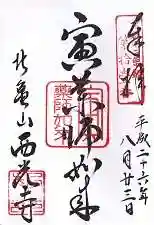 奉拝
平成二十六年
八月廿三日
寅薬師如来
北亀山西光寺